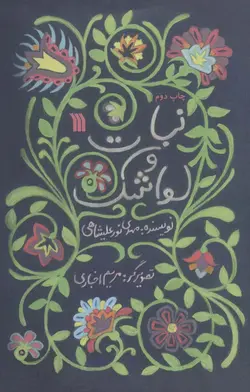 چاپ دوم
نبات
و
لواشک
نویسنده: مهدی نورعلیشاهی
تصویرگر: مریم اخباری